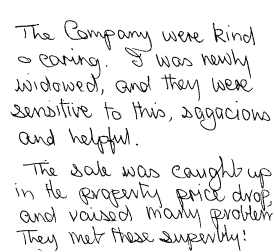 The Company were kind
& caring. I was newly
widowed, and they were
sensitive to this, sagacious
and helpful.
The sale was caught up
in the property price drop,
and raised many problem
They met these superbly!